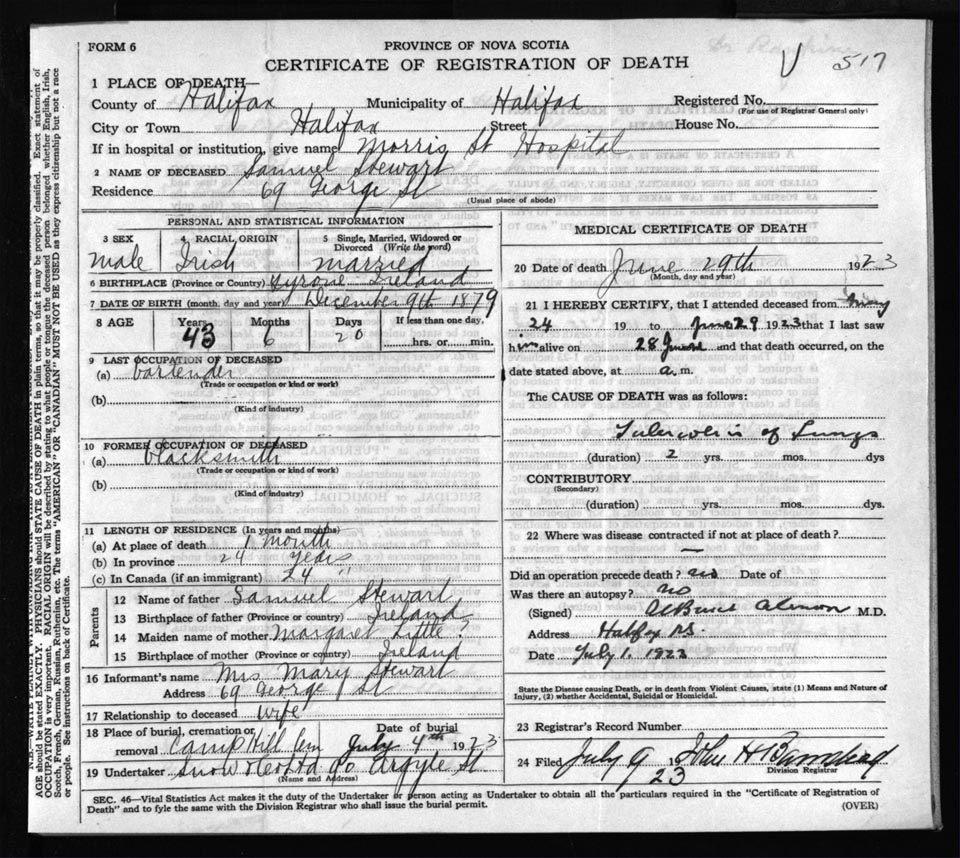 FORM 6
PROVINCE OF NOVA SCOTIA
CERTIFICATE OF REGISTRATION OF DEATH
517
1 PLACE OF DEATH—
County of Halifax Municipality of Halifax Registered No.
(For use of Registrar General only)
City or Town Halifax Street House No.
If in hospital or institution, give name Morris St Hospital
2 NAME OF DECEASED Samuel Stewart
Residence 69 George St
(Usual place of abode)
PERSONAL AND STATISTICAL INFORMATION
3 SEX RACIAL ORIGIN 5 Single, Married, Widowed or Divorced (Write the word)
male Irish married
6 BIRTHPLACE (Province or Country) Tyrone Ireland
7 DATE OF BIRTH (month, day and year) December 9th 1879
8 AGE Years Months Days If less than one day,
43 6 20 hrs. or min.
9 LAST OCCUPATION OF DECEASED
(a) bartender
(Trade or occupation or kind of work)
(b)
(Kind of industry)
10 FORMER OCCUPATION OF DECEASED
(a) blacksmith
(Trade or occupation or kind of work)
(b)
(Kind of industry)
11 LENGTH OF RESIDENCE (In years and months)
(a) At place of death 1 month
(b) In province 24 years
(c) In Canada (if an immigrant) 24 "
Parents
12 Name of father Samuel Stewart
13 Birthplace of father (Province or country) Ireland
14 Maiden name of mother Margaret Little ?
15 Birthplace of mother (Province or country) Ireland
16 Informant's name Mrs Mary Stewart
Address 69 George St
17 Relationship to deceased wife
18 Place of burial, cremation or removal Camp Hill Cem Date of burial July 4th 1923
19 Undertaker Snow & Co Ltd 90 Argyle St
(Name and Address)
MEDICAL CERTIFICATE OF DEATH
20 Date of death June 29th 1923
(Month, day and year)
21 I HEREBY CERTIFY, that I attended deceased from May
24 19 to June 29 1923 that I last saw
him alive on 28 June and that death occurred, on the
date stated above, at a.m.
The CAUSE OF DEATH was as follows:
Tuberculosis of Lungs
(duration) 2 yrs. mos. dys
CONTRIBUTORY
(Secondary)
(duration) yrs. mos. dys.
22 Where was disease contracted if not at place of death?
—
Did an operation precede death? no Date of
Was there an autopsy? no
(Signed) M.D.
Address Halifax NS.
Date July 1. 1923
State the Disease causing Death, or in death from Violent Causes, state (1) Means and Nature of Injury, (2) whether Accidental, Suicidal or Homicidal.
23 Registrar's Record Number
24 Filed July 9 1923 John H
Division Registrar
SEC. 46—Vital Statistics Act makes it the duty of the Undertaker or person acting as Undertaker to obtain all the particulars required in the "Certificate of Registration of
Death" and to fyle the same with the Division Registrar who shall issue the burial permit.
(OVER)
AGE should be stated EXACTLY. PHYSICIANS should STATE CAUSE OF DEATH in plain terms, so that it may be properly classified. Exact statement of
OCCUPATION is very important. RACIAL ORIGIN will be described by stating to what people or tongue the deceased person belonged whether English, Irish,
Scotch, French, German, Russian, Ruthenian, etc. The terms "AMERICAN" OR "CANADIAN" MUST NOT BE USED as they express citizenship but not a race
or people. See instructions on back of Certificate.